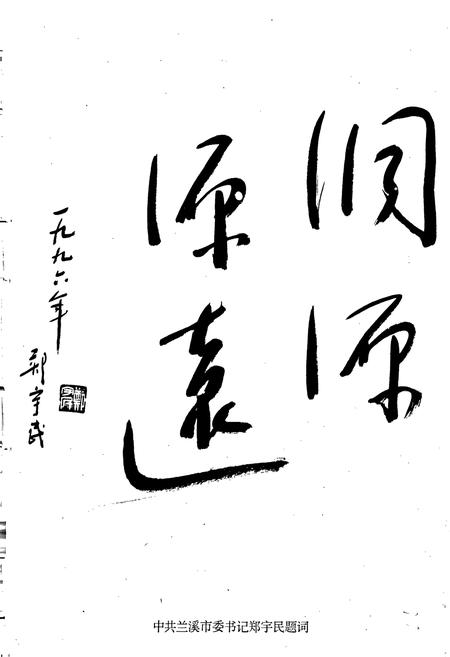 洞源
源遠
一九九六年
郑宇民
中共兰溪市委书记郑宇民题词